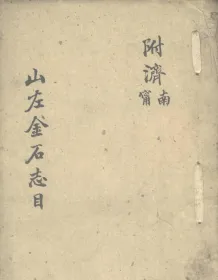 附濟南
甯
山左金石志目